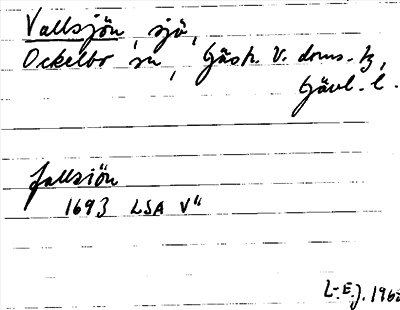 Vallsjön, sjö,
Ockelbo sn, Gästr. V. doms. tg,
Gävl. l.
fallsiön
1693 LSA V"
L-E.J. 196